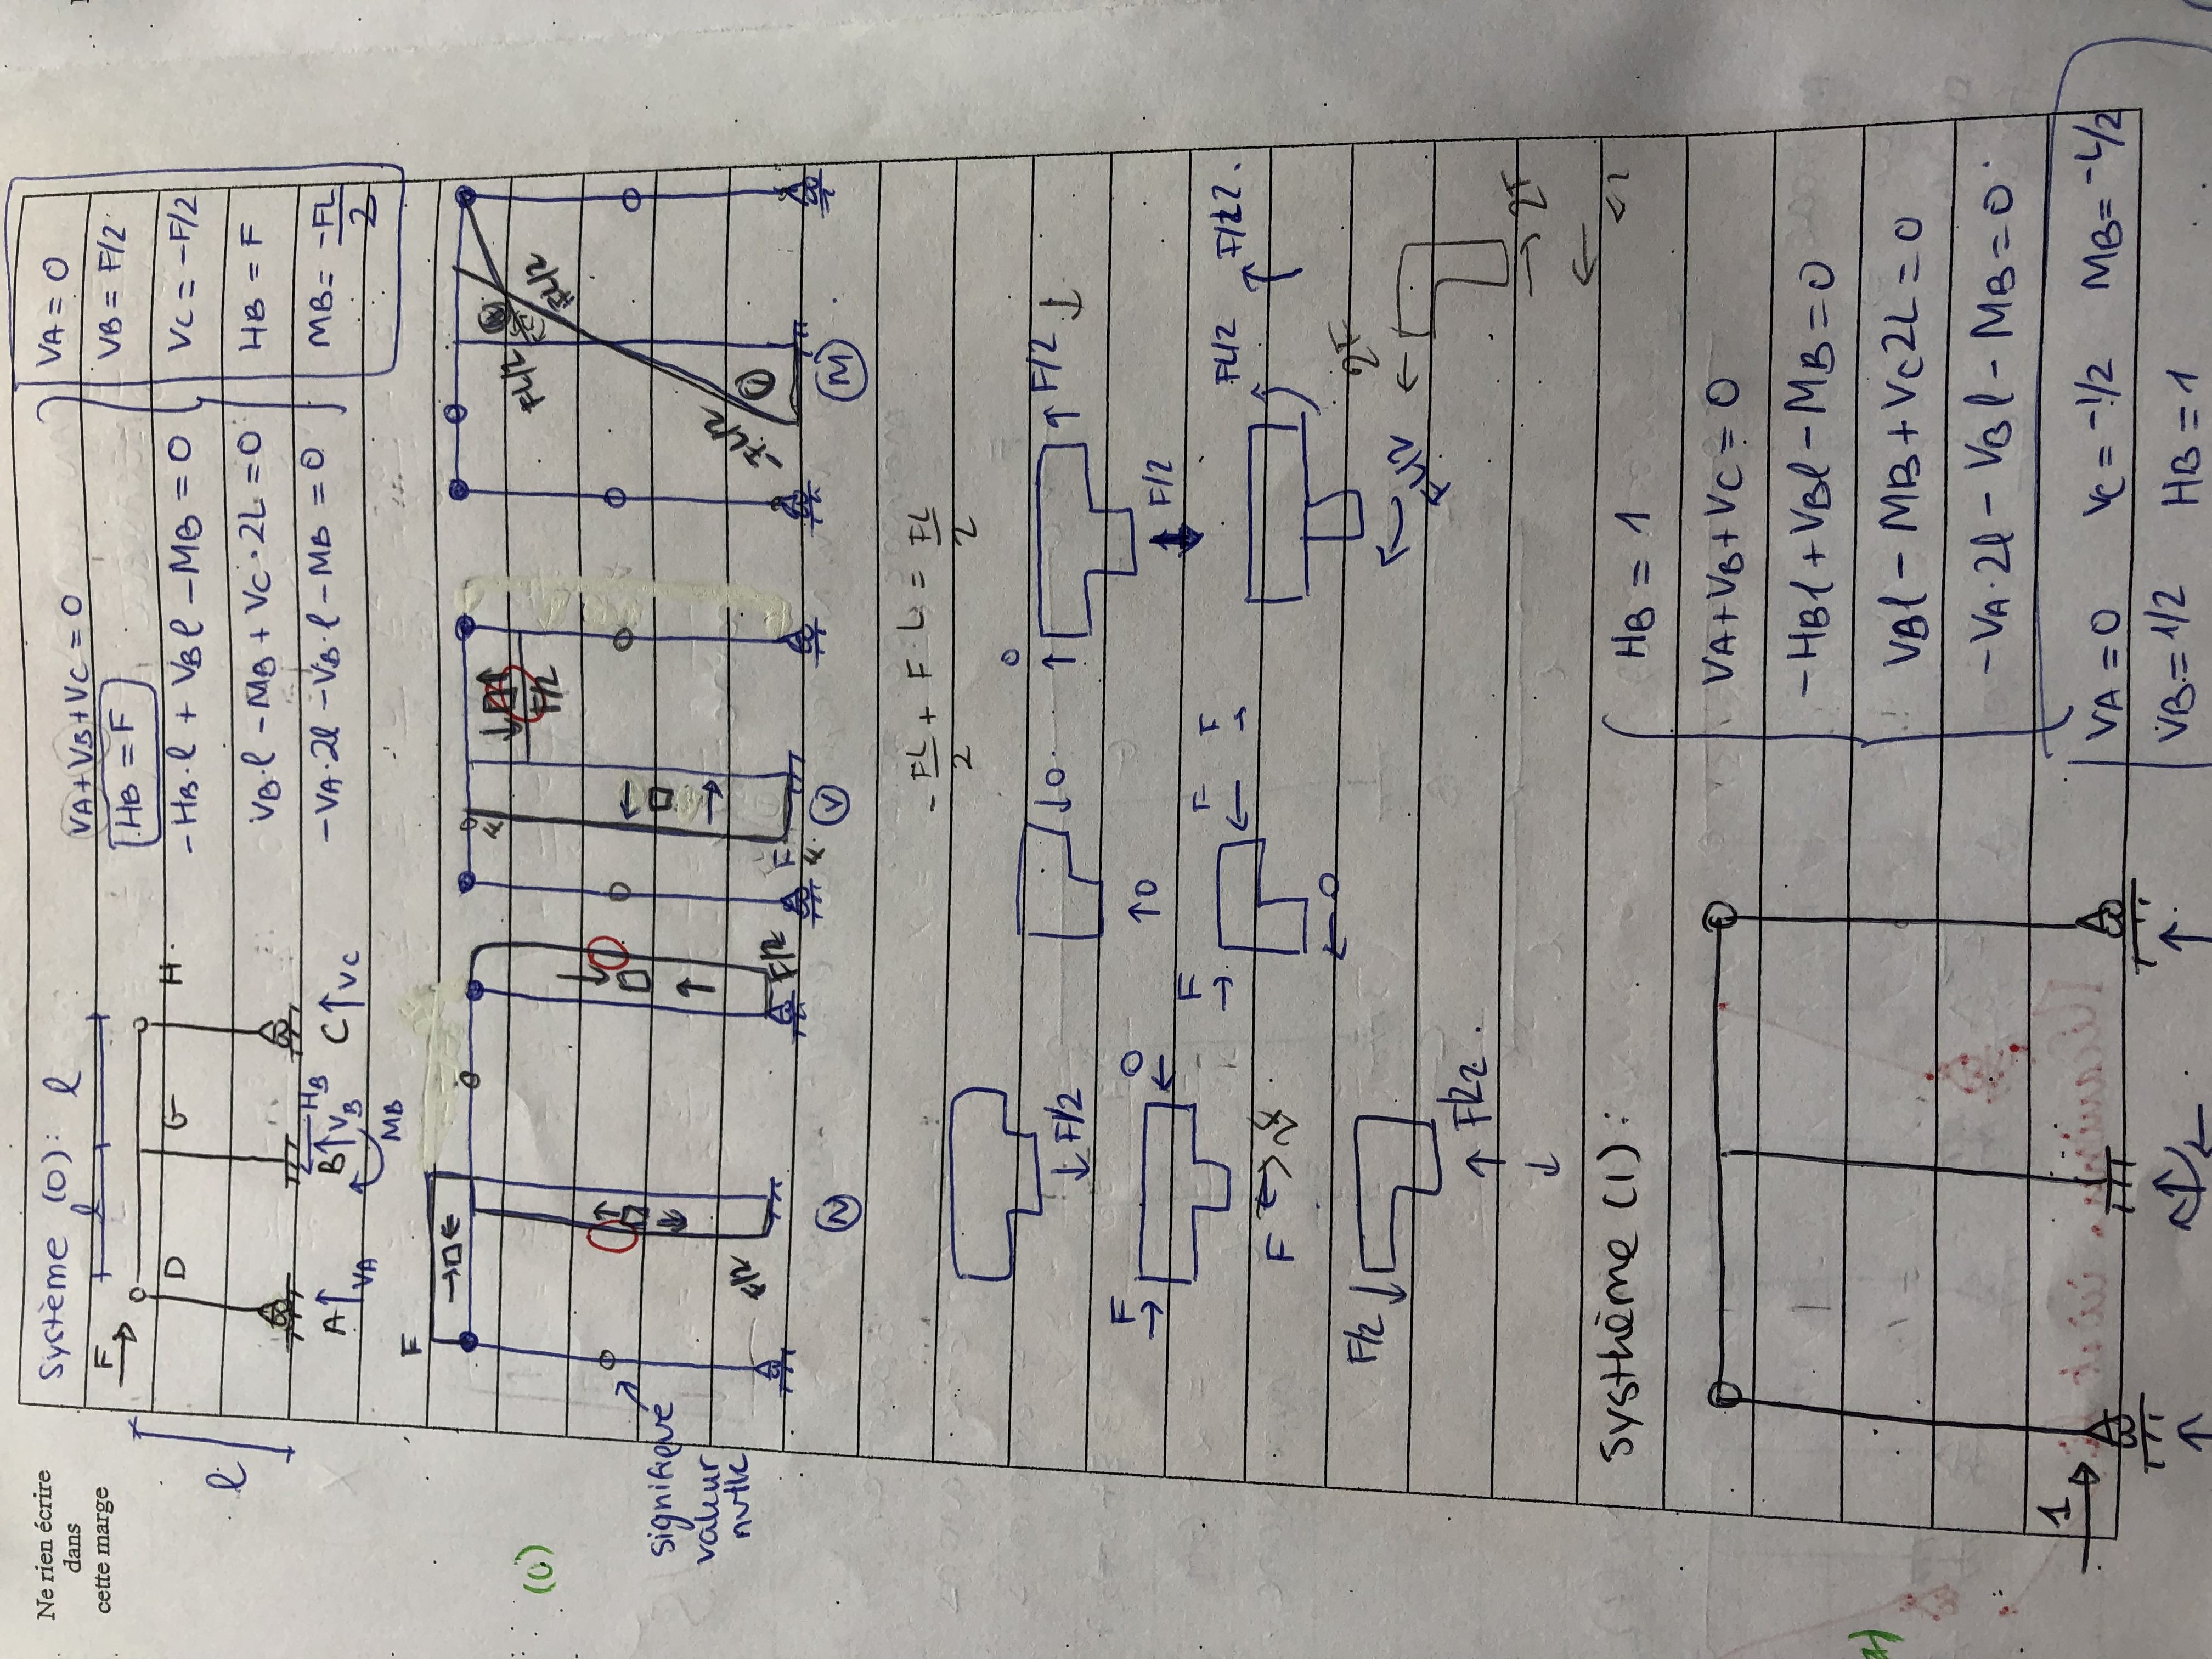 Ne rien écrire
dans
cette marge
Système (0): l
l
F
D G H.
l
A VA
B VB HB
MB
C VC
VA+VB+VC = 0
HB = F
-HB.l + VBl - MB = 0
VB.l - MB + VC.2L = 0
-VA.2l - VB.l - MB = 0
VA = 0
VB = F/2
VC = -F/2
HB = F
MB = -FL/2
F
(0)
signifique
valeur
nulle
F/2
F/2
N
F
F/2
F
V
FL/2
FL/2
-FL/2
M
-FL/2 + F.L = FL/2
F/2
0.
0
0
F/2
F/2
F
0
F
F
F
F
0
FL/2
F/2
FL/2
F/2
F/2.
2F
2F
Systhème (1):
HB = 1
VA+VB+VC = 0
-HBl+VBl-MB=0
VBl - MB + VC2L = 0
-VA.2l - VBl - MB = 0
1
VA = 0 VC = -1/2 MB = -L/2
VB = 1/2 HB = 1